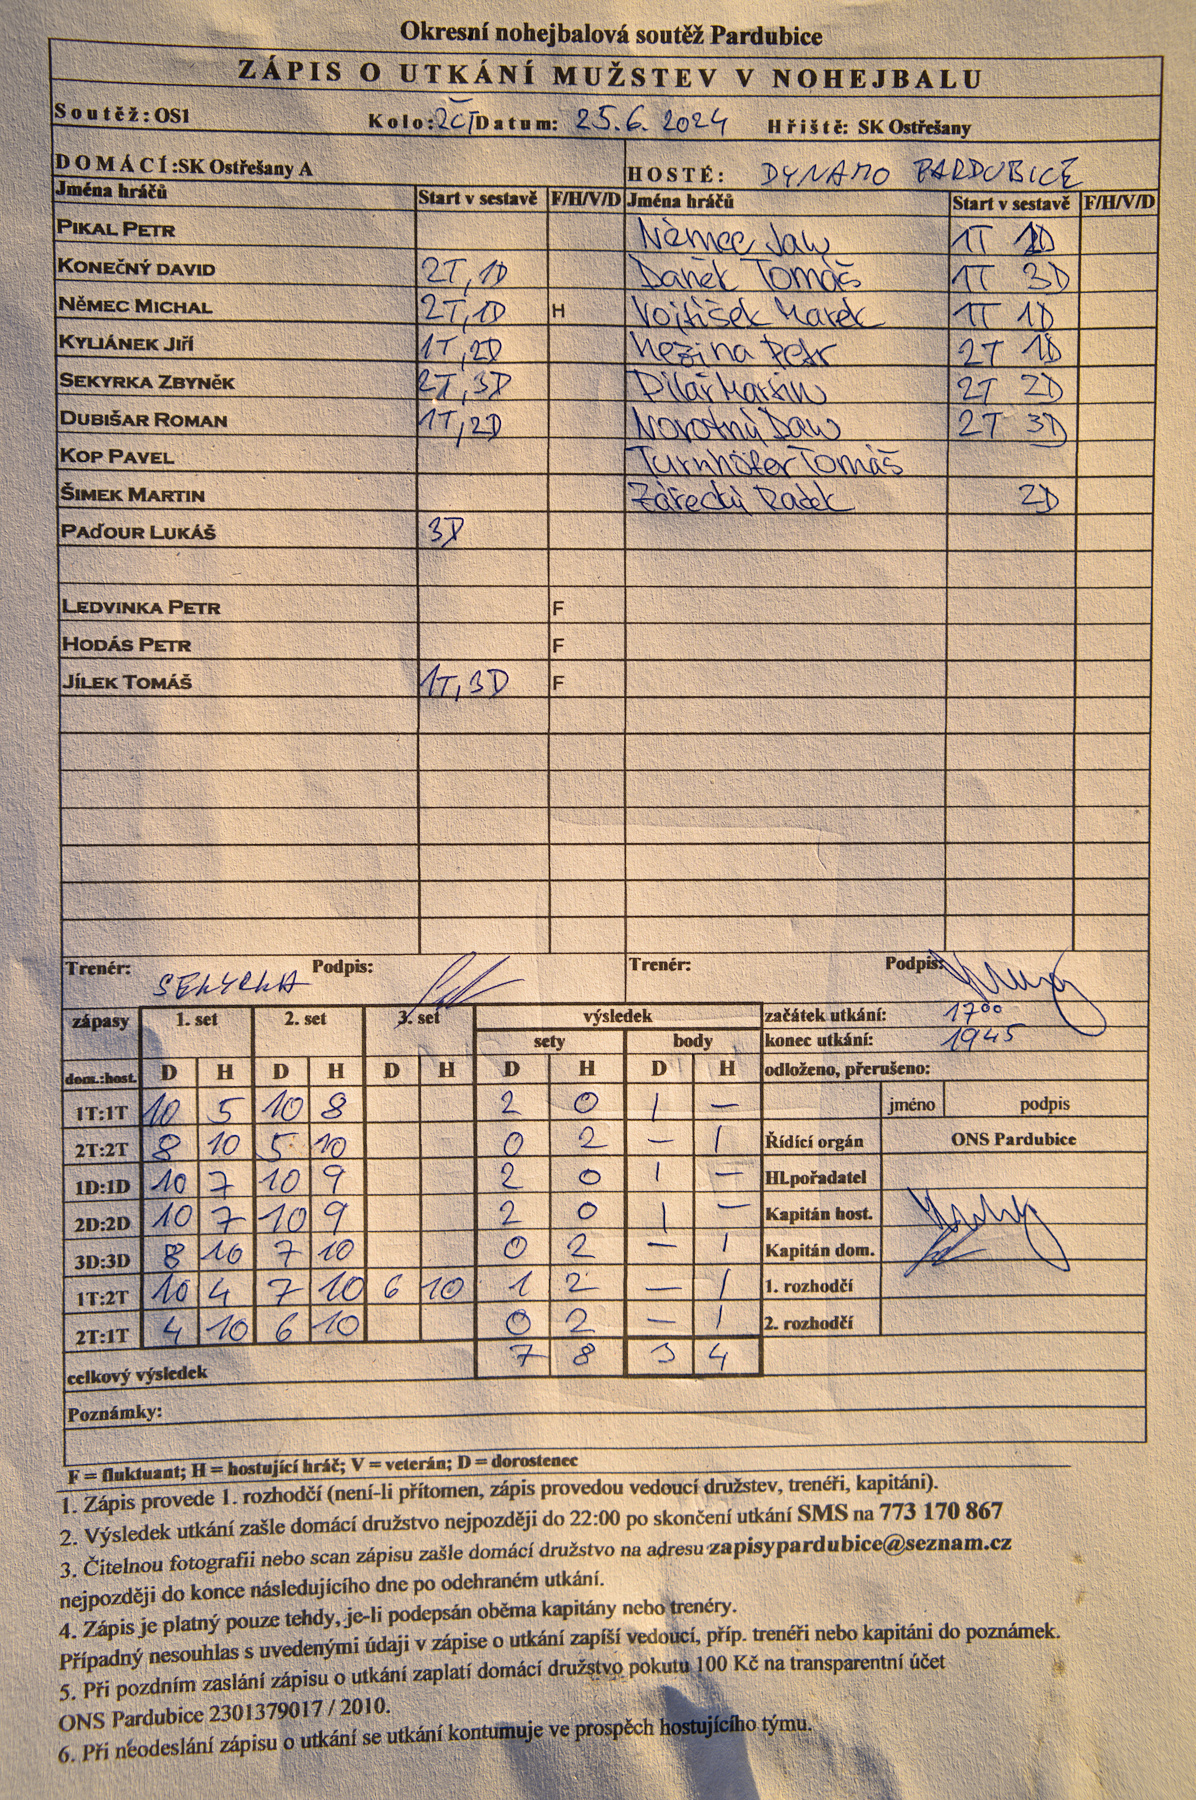 Okresní nohejbalová soutěž Pardubice
ZÁPIS O UTKÁNÍ MUŽSTEV V NOHEJBALU
Soutěž: OS1 Kolo: 2ČT Datum: 25.6.2024 Hřiště: SK Ostřešany
DOMÁCÍ: SK Ostřešany A HOSTÉ: DYNAMO PARDUBICE
Jména hráčů Start v sestavě F/H/V/D Jména hráčů Start v sestavě F/H/V/D
PIKAL PETR Němec Jan 1T 1D
KONEČNÝ DAVID 2T, 1D Daněk Tomáš 1T 3D
NĚMEC MICHAL 2T, 1D H Vojtíšek Marek 1T 1D
KYLIÁNEK JIŘÍ 1T, 2D Petr 2T 1D
SEKYRKA ZBYNĚK 2T, 3D Pilař Martin 2T 2D
DUBIŠAR ROMAN 1T, 2D Novotný Dan 2T 3D
KOP PAVEL Turnhöfer Tomáš
ŠIMEK MARTIN Zářecký Radek 2D
PAĎOUR LUKÁŠ 3D
LEDVINKA PETR F
HODÁS PETR F
JÍLEK TOMÁŠ 1T, 3D F
Trenér: SEKYRKA Podpis: Trenér: Podpis:
zápasy 1. set 2. set 3. set výsledek začátek utkání: 17 00
sety body konec utkání: 1945
dom.:host. D H D H D H D H D H odloženo, přerušeno:
1T:1T 10 5 10 8 2 0 1 — jméno podpis
2T:2T 8 10 5 10 0 2 — 1 Řídící orgán ONS Pardubice
1D:1D 10 7 10 9 2 0 1 — Hl.pořadatel
2D:2D 10 7 10 9 2 0 1 — Kapitán host.
3D:3D 8 10 7 10 0 2 — 1 Kapitán dom.
1T:2T 10 4 7 10 6 10 1 2 — 1 1. rozhodčí
2T:1T 4 10 6 10 0 2 — 1 2. rozhodčí
celkový výsledek 7 8 3 4
Poznámky:
F = fluktuant; H = hostující hráč; V = veterán; D = dorostenec
1. Zápis provede 1. rozhodčí (není-li přítomen, zápis provedou vedoucí družstev, trenéři, kapitáni).
2. Výsledek utkání zašle domácí družstvo nejpozději do 22:00 po skončení utkání SMS na 773 170 867
3. Čitelnou fotografii nebo scan zápisu zašle domácí družstvo na adresu zapisypardubice@seznam.cz
nejpozději do konce následujícího dne po odehraném utkání.
4. Zápis je platný pouze tehdy, je-li podepsán oběma kapitány nebo trenéry.
Případný nesouhlas s uvedenými údaji v zápise o utkání zapíší vedoucí, příp. trenéři nebo kapitáni do poznámek.
5. Při pozdním zaslání zápisu o utkání zaplatí domácí družstvo pokutu 100 Kč na transparentní účet
ONS Pardubice 2301379017 / 2010.
6. Při neodeslání zápisu o utkání se utkání kontumuje ve prospěch hostujícího týmu.